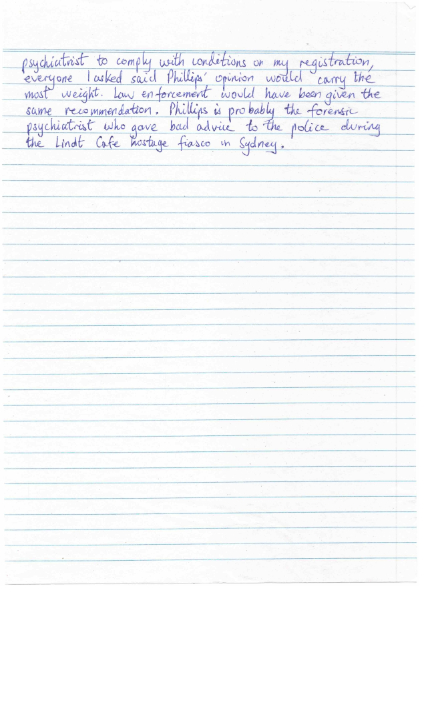 psychiatrist to comply with conditions on my registration,
everyone I asked said Phillips' opinion would carry the
most weight. Law enforcement would have been given the
same recommendation. Phillips is probably the forensic
psychiatrist who gave bad advice to the police during
the Lindt Cafe hostage fiasco in Sydney.